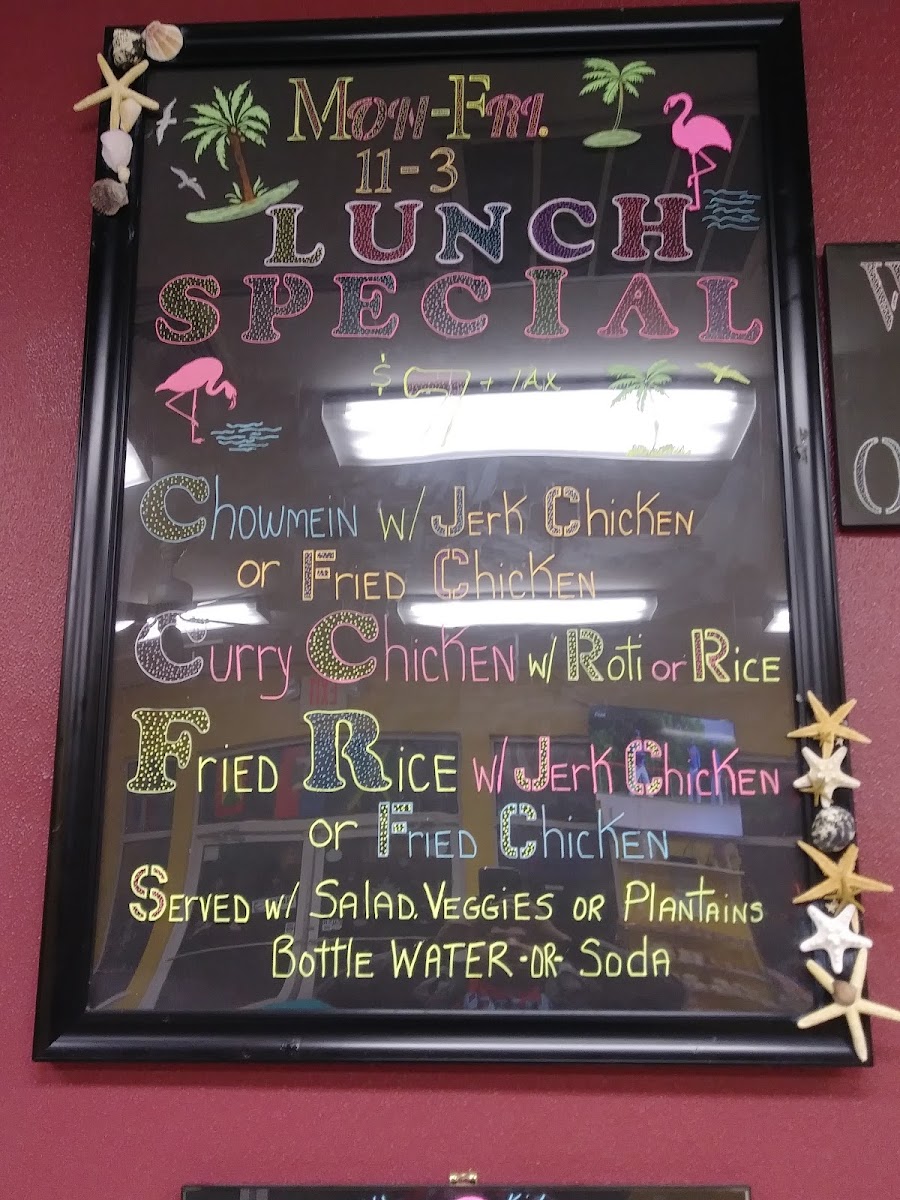 Mon-Fri.
11-3
LUNCH
SPECIAL
$7 + TAX
Chowmein w/ Jerk Chicken
or Fried Chicken
Curry Chicken w/ Roti or Rice
Fried Rice w/ Jerk Chicken
or Fried Chicken
Served w/ Salad. Veggies or Plantains
Bottle Water -or- Soda
W
O